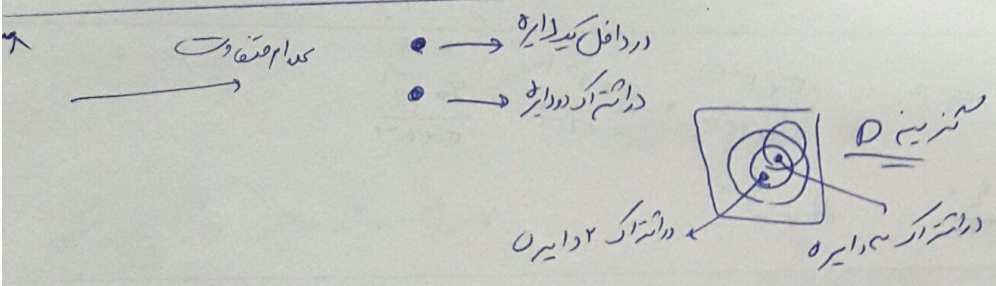 ۳۸
کدام متفاوت
در داخل یک دایره
در اشتراک دو دایره
گزینه D
در اشتراک ۳ دایره
در اشتراک ۲ دایره